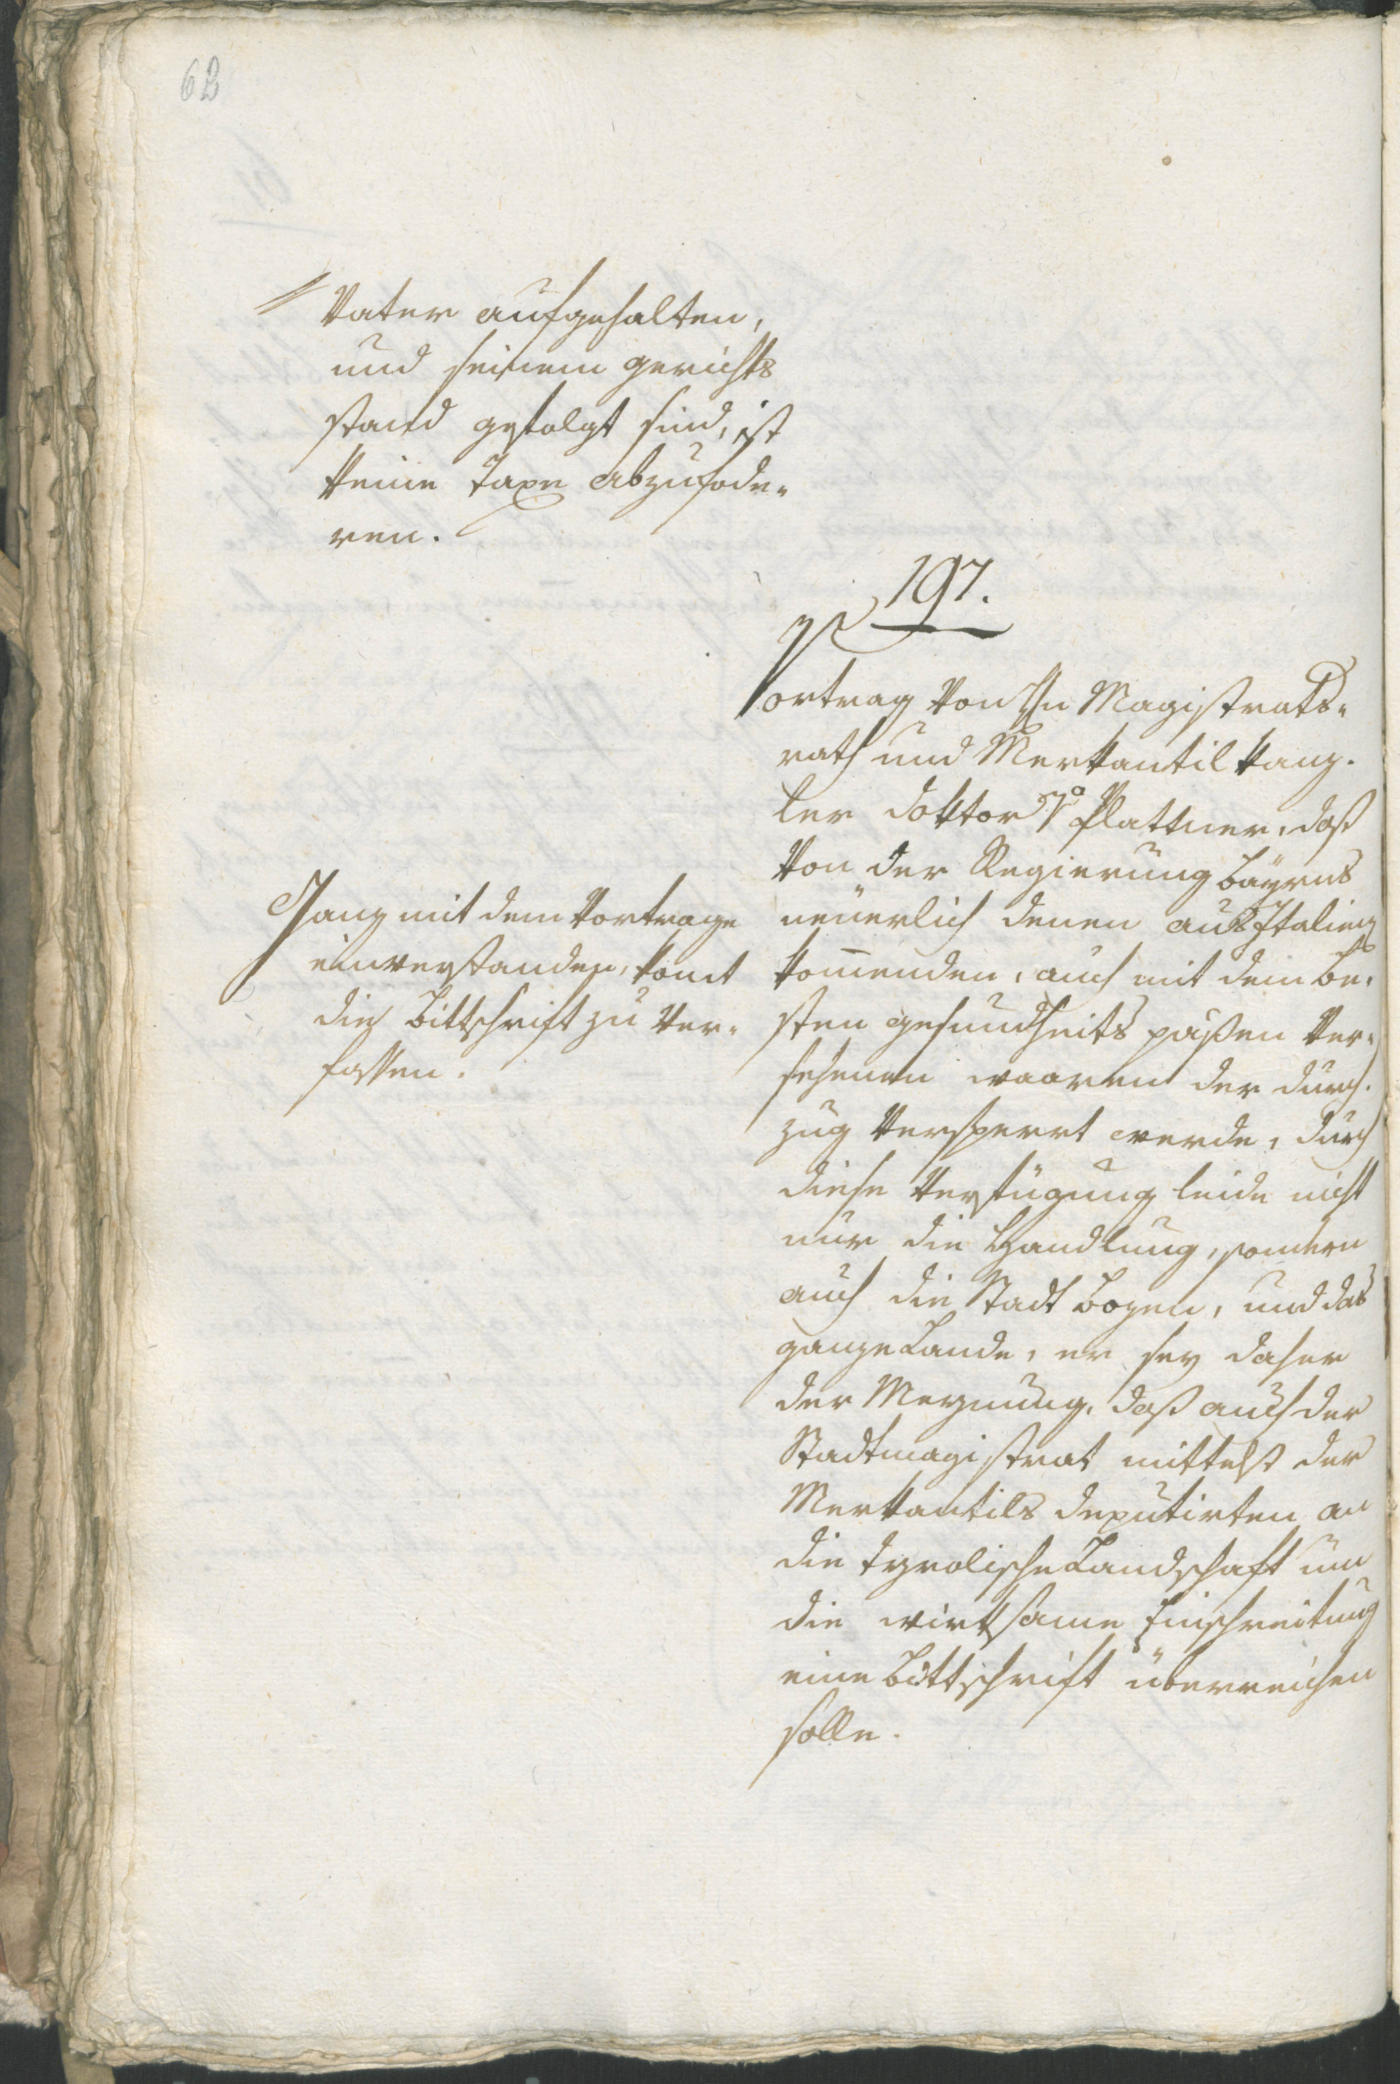 62
Vater aufgehalten,
und seinem gerichts
stand gefolgt sind, ist
keine Taxe abzufode-
ren.
197.
Vortrag von Hn Magistrats-
rath und Merkantil kanz-
ler doktor v Plattner, daß
von der Regierung Bayrns
neüerlich denen aus Italien
kommenden, auch mit dem be-
sten gesundheits paßen ver-
sehenen waaren der durch-
zug versperrt werde, durch
diese Verfügung leide nicht
nur die Handlung, sondern
auch die Stadt Bozen, und das
ganze Lande, er sey daher
der Meynung, daß auch der
Stadtmagistrat mittelst der
Merkantils deputirten an
die tyrolische Landschaft um
die wirksame Einschreitung
eine Bittschrift überreichen
solle.
Ganz mit dem Vortrage
einverstanden, komt
die Bittschrift zu ver-
fassen.